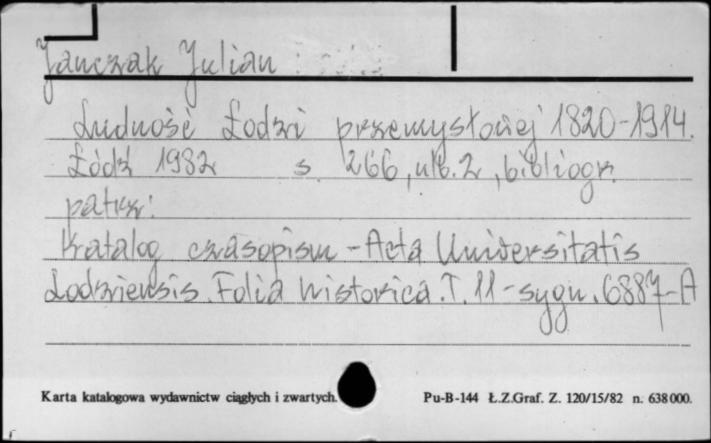 Janczak Julian
Ludność Łodzi przemysłowej 1820-1914.
Łódź 1982 s. 266, nlb. 2, bibliogr.
patrz:
Katalog czasopism - Acta Universitatis
Lodziensis. Folia historica. T. 11 - sygn. 6887-A
Karta katalogowa wydawnictw ciągłych i zwartych. Pu-B-144 Ł.Z.Graf. Z. 120/15/82 n. 638000.